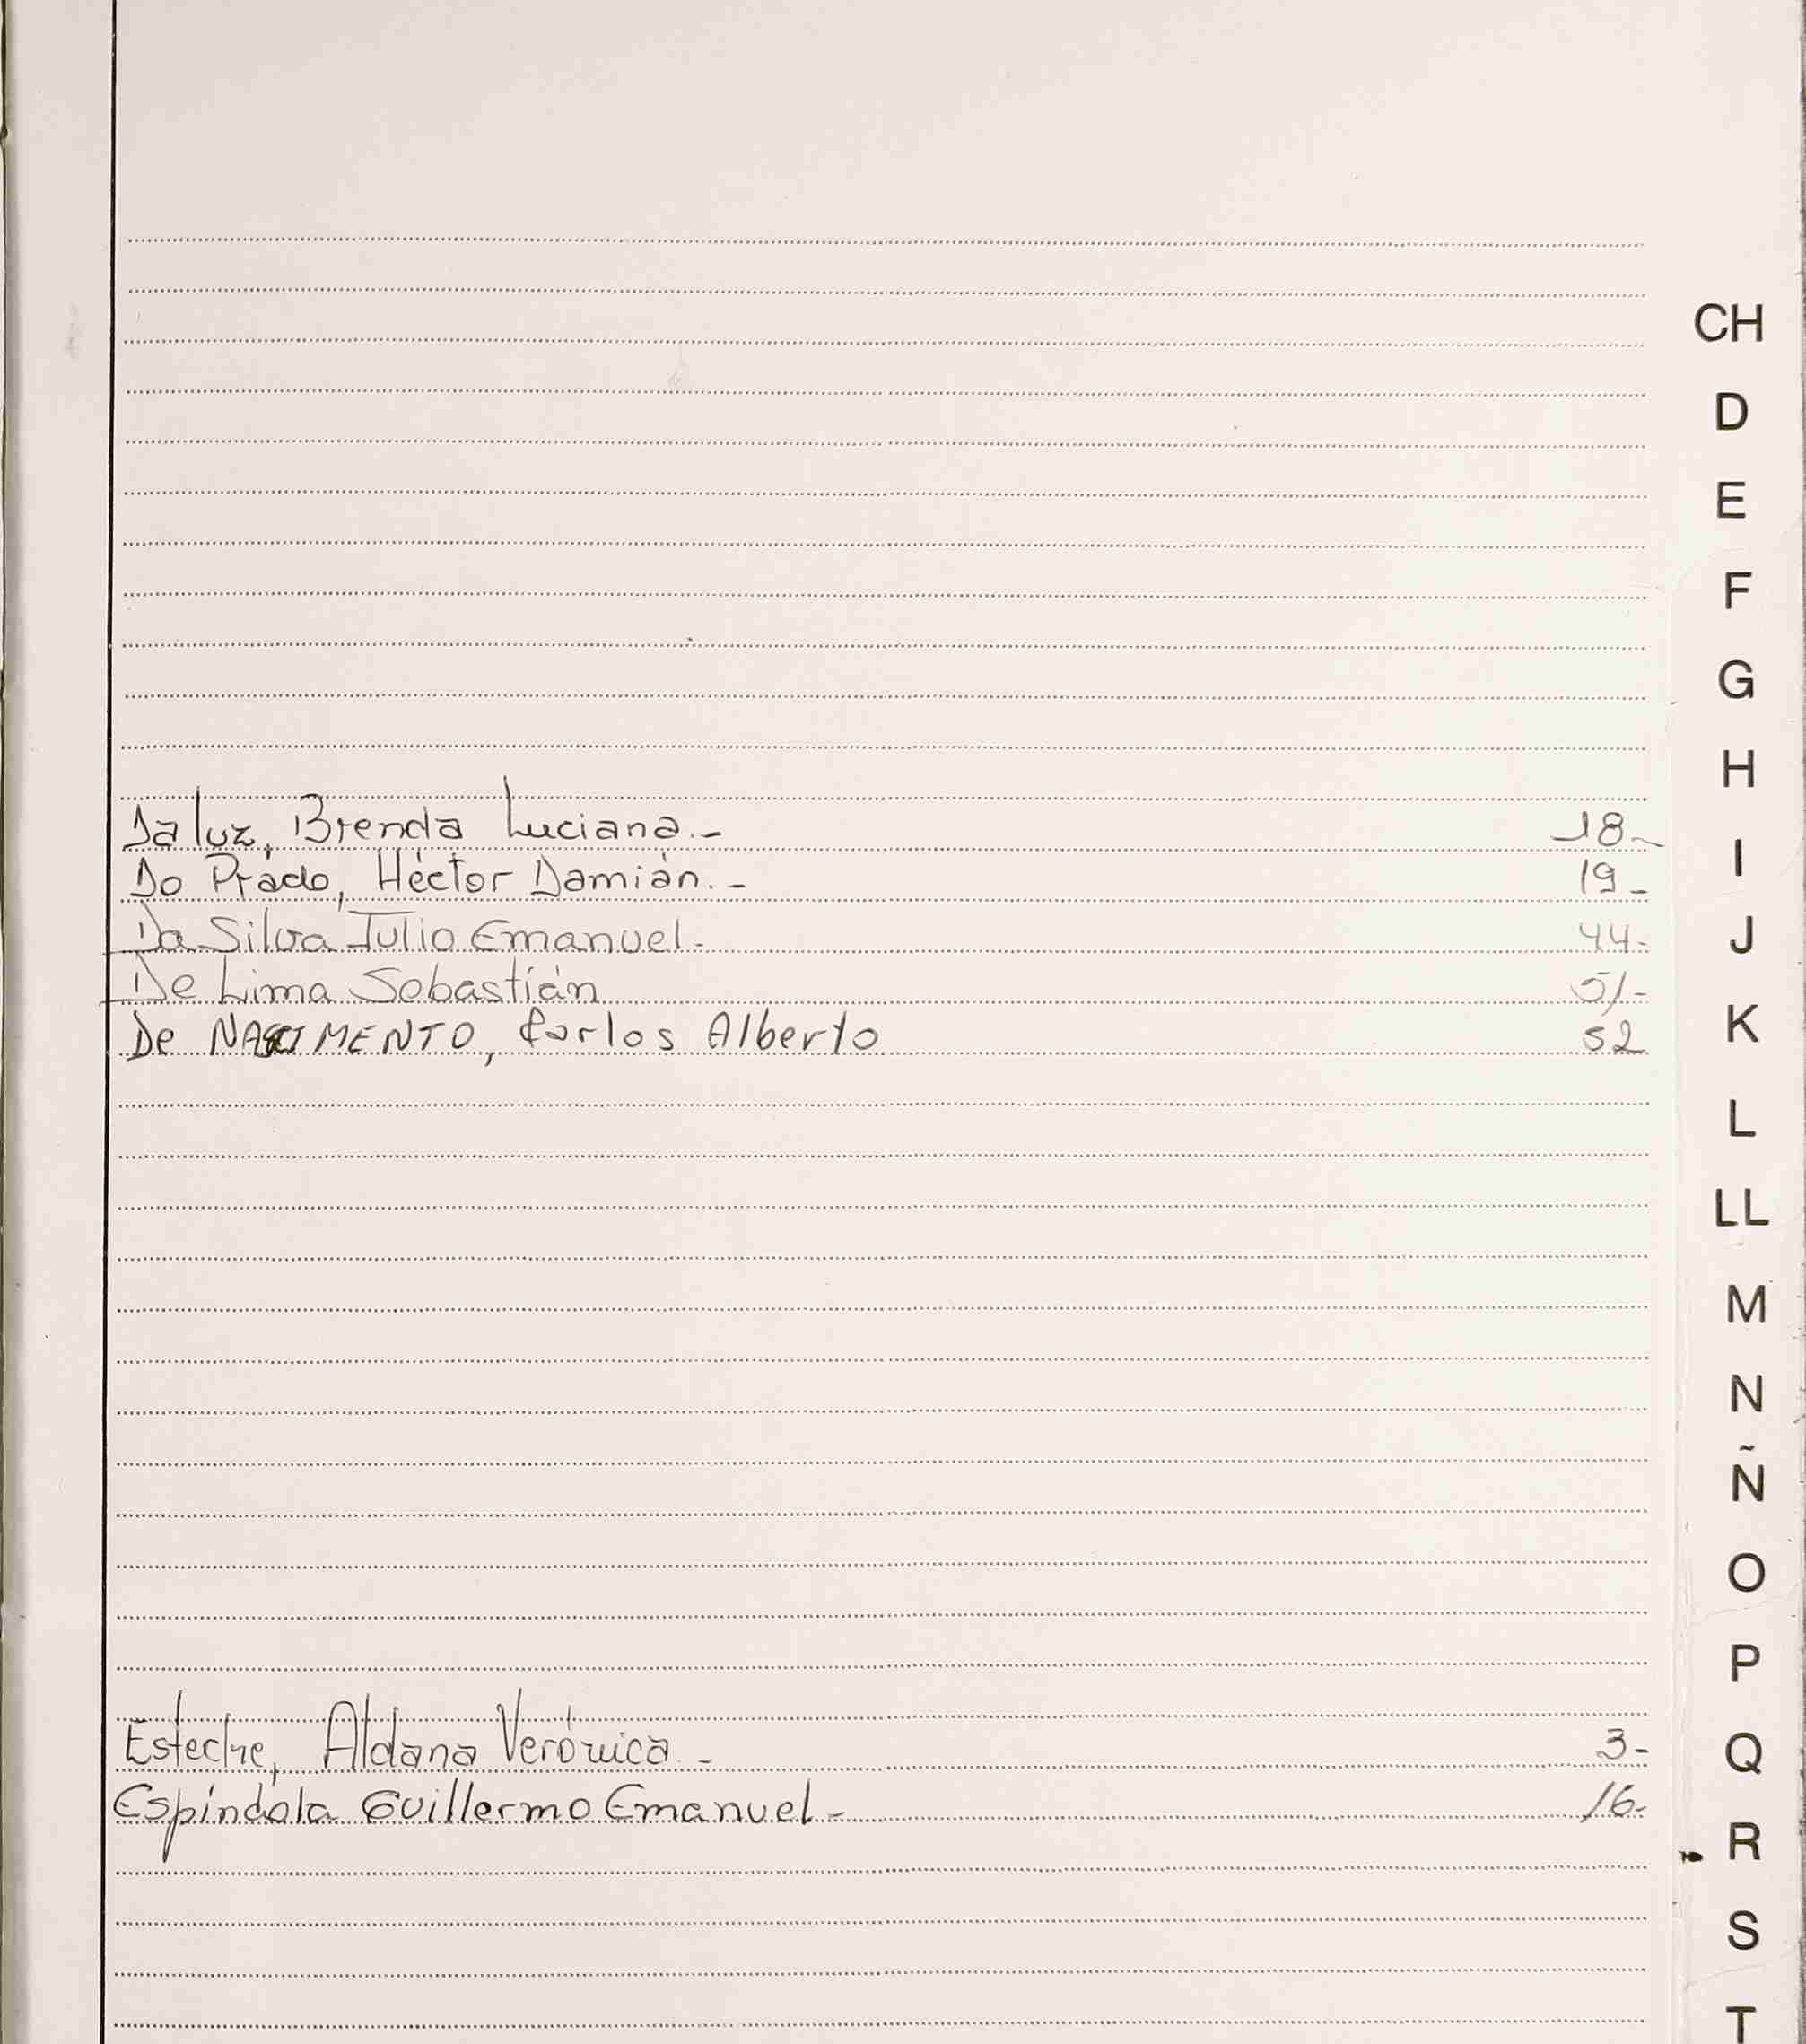 CH
D
E
F
G
H
Da luz, Brenda Luciana.- 18-
I
Do Prado, Héctor Damián.- 19-
Da Silva Julio Emanuel- 44-
J
De Lima Sebastián 51-
De NASCIMENTO, Carlos Alberto 52
K
L
LL
M
N
Ñ
O
P
Esteche, Aldana Verónica - 3-
Q
Espíndola Guillermo Emanuel- 16-
R
S
T